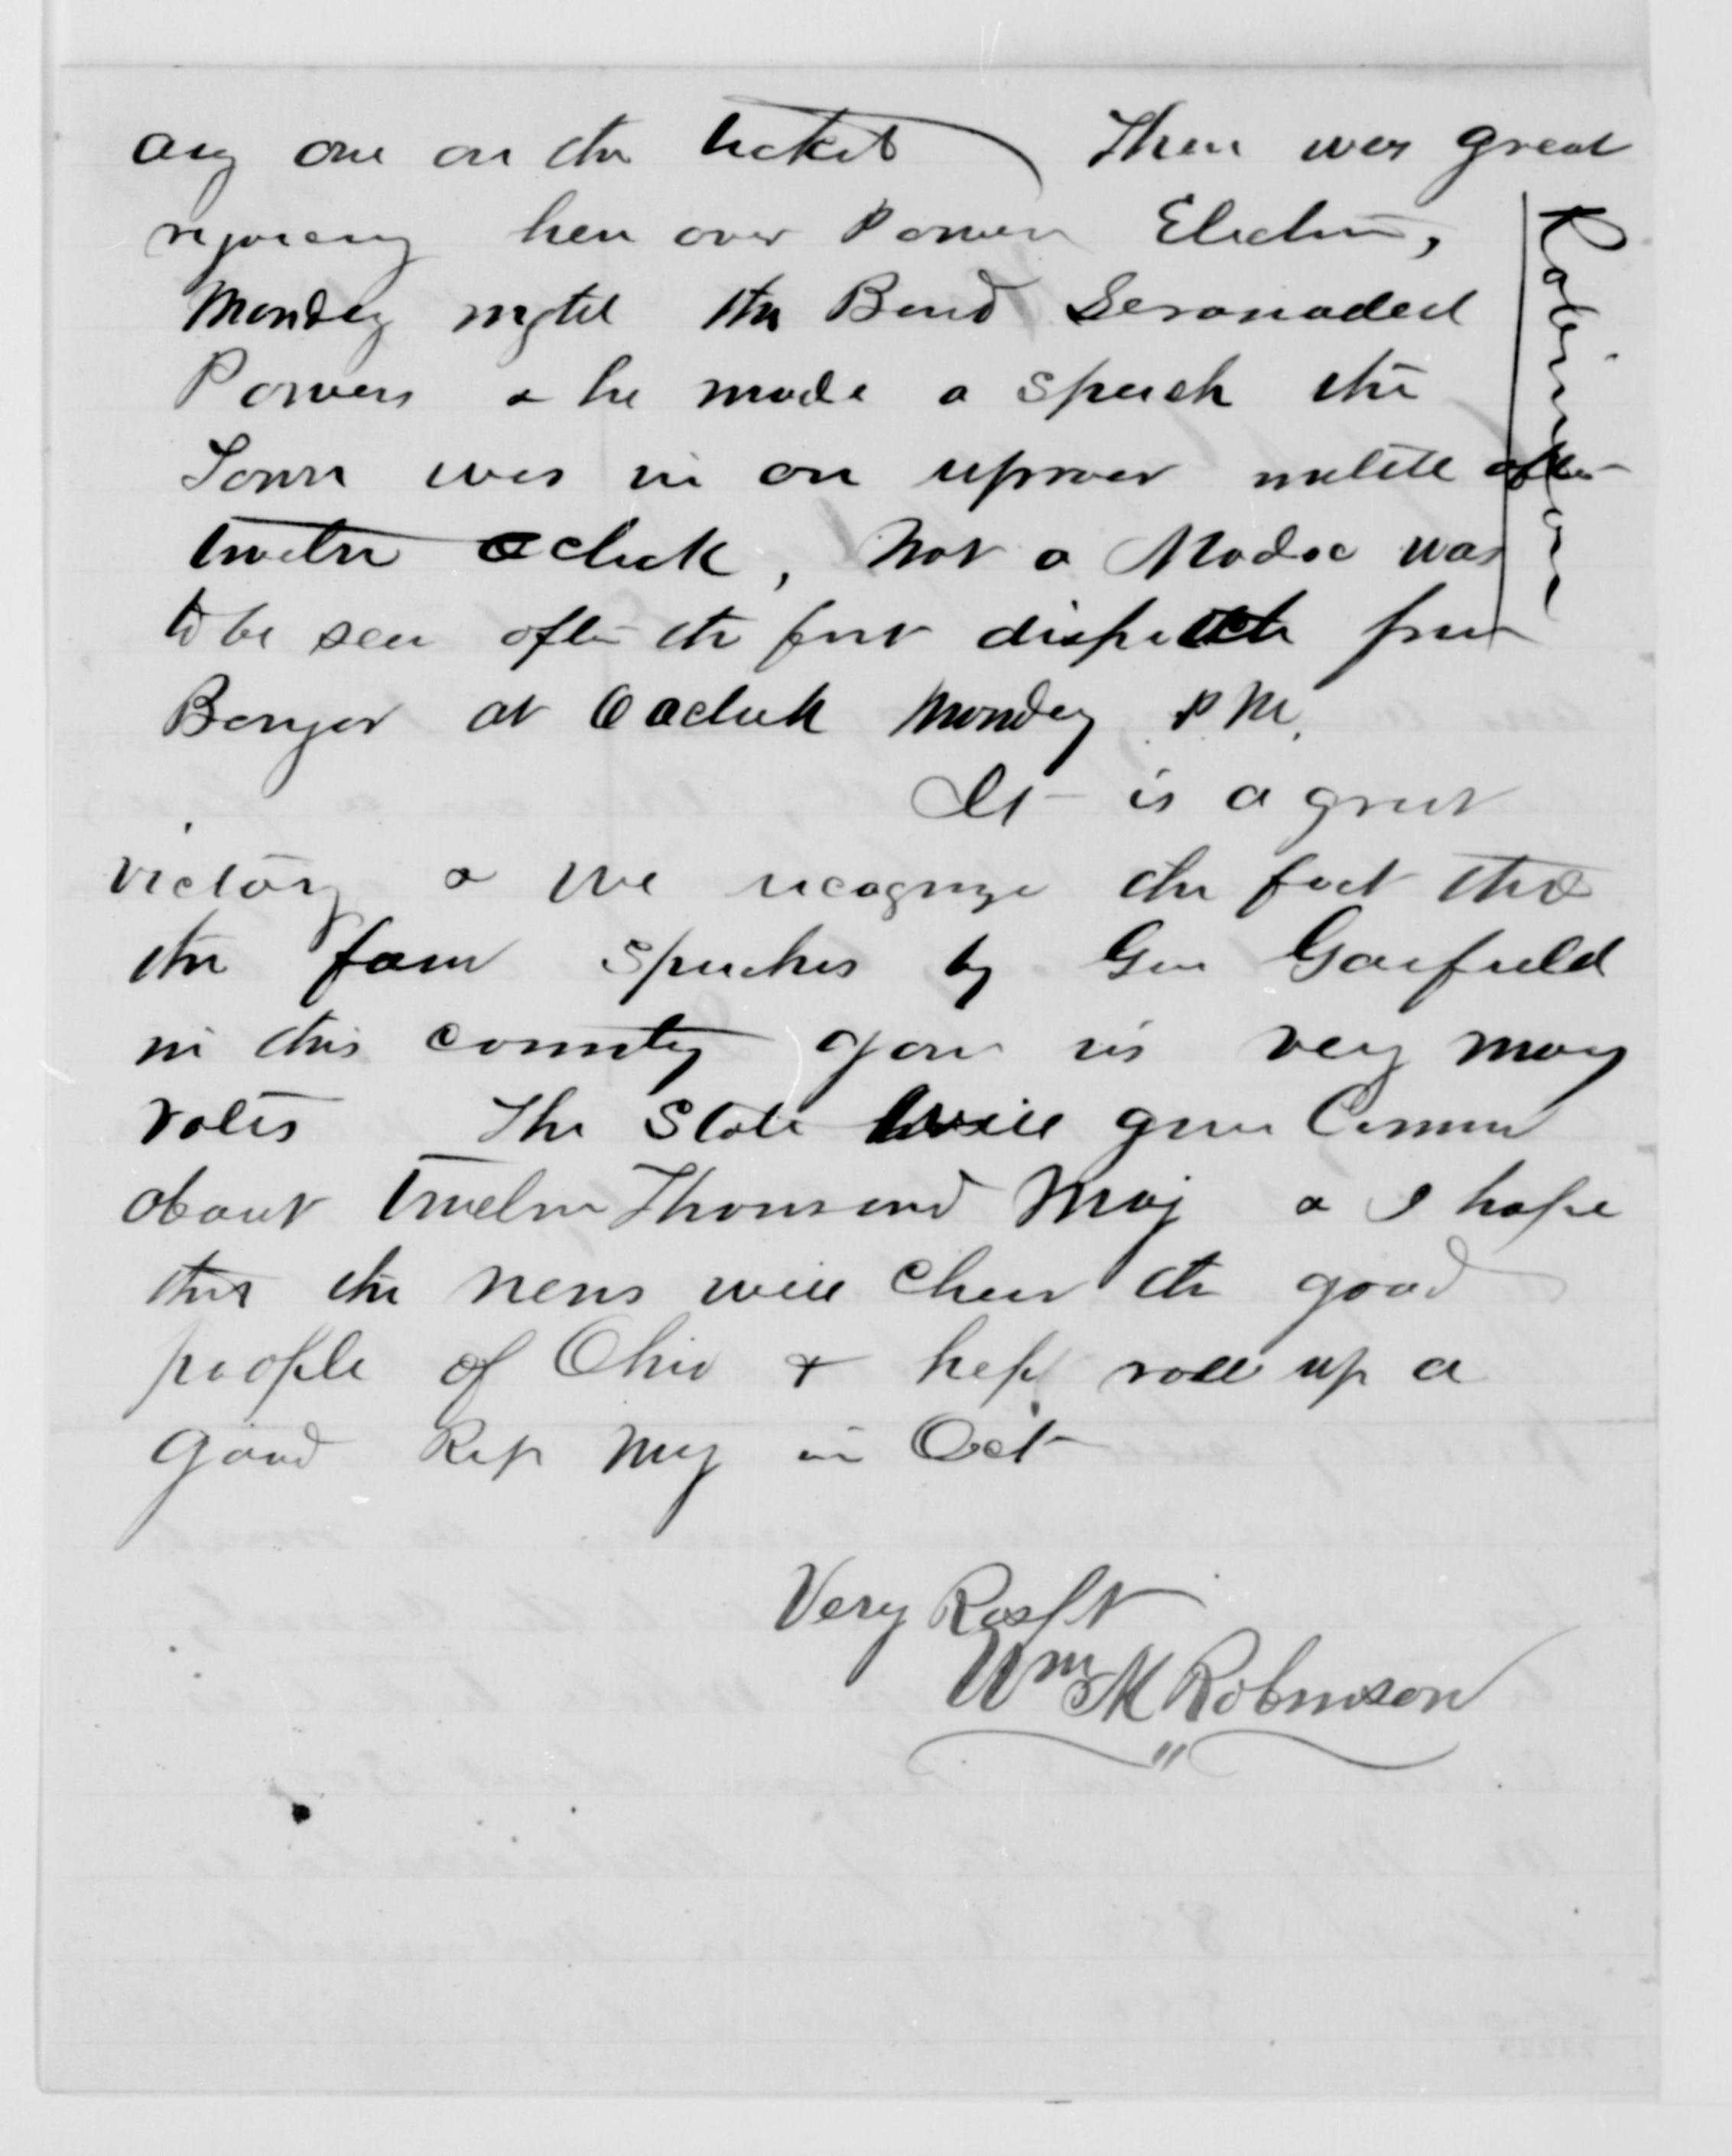 any one on the ticket There was great
rejoicing here over Powers Election,
Monday night the Band Seranaded
Powers & he made a speech the
Town was in an uproar untill after
twelve oclock, Not a Modoc was
to be seen after the first dispatch from
Bangor at 6 oclock Monday P.M.
It is a great
victory & we recognize the fact that
the four speeches by Gen Garfield
in this county gave us very many
votes The State will give Connor
about Twelve Thousand Maj & I hope
that the news will cheer the good
people of Ohio & help roll up a
good Rep Maj in Oct
Very Respt
Wm M Robinson
Robinson